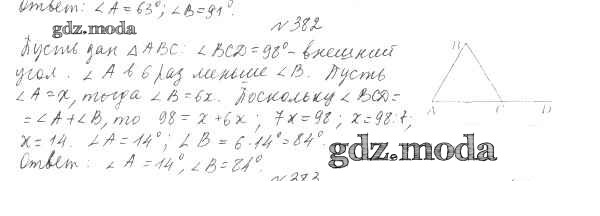 Ответ: ∠A = 63°; ∠B = 91°.
gdz.moda
№ 382
Пусть дан △ABC: ∠BCD = 98° - внешний
угол. ∠A в 6 раз меньше ∠B. Пусть
∠A = x, тогда ∠B = 6x. Поскольку ∠BCD =
= ∠A + ∠B, то 98 = x + 6x; 7x = 98; x = 98:7;
x = 14. ∠A = 14°; ∠B = 6·14° = 84°.
Ответ: ∠A = 14°, ∠B = 84°.
B
A C D
gdz.moda